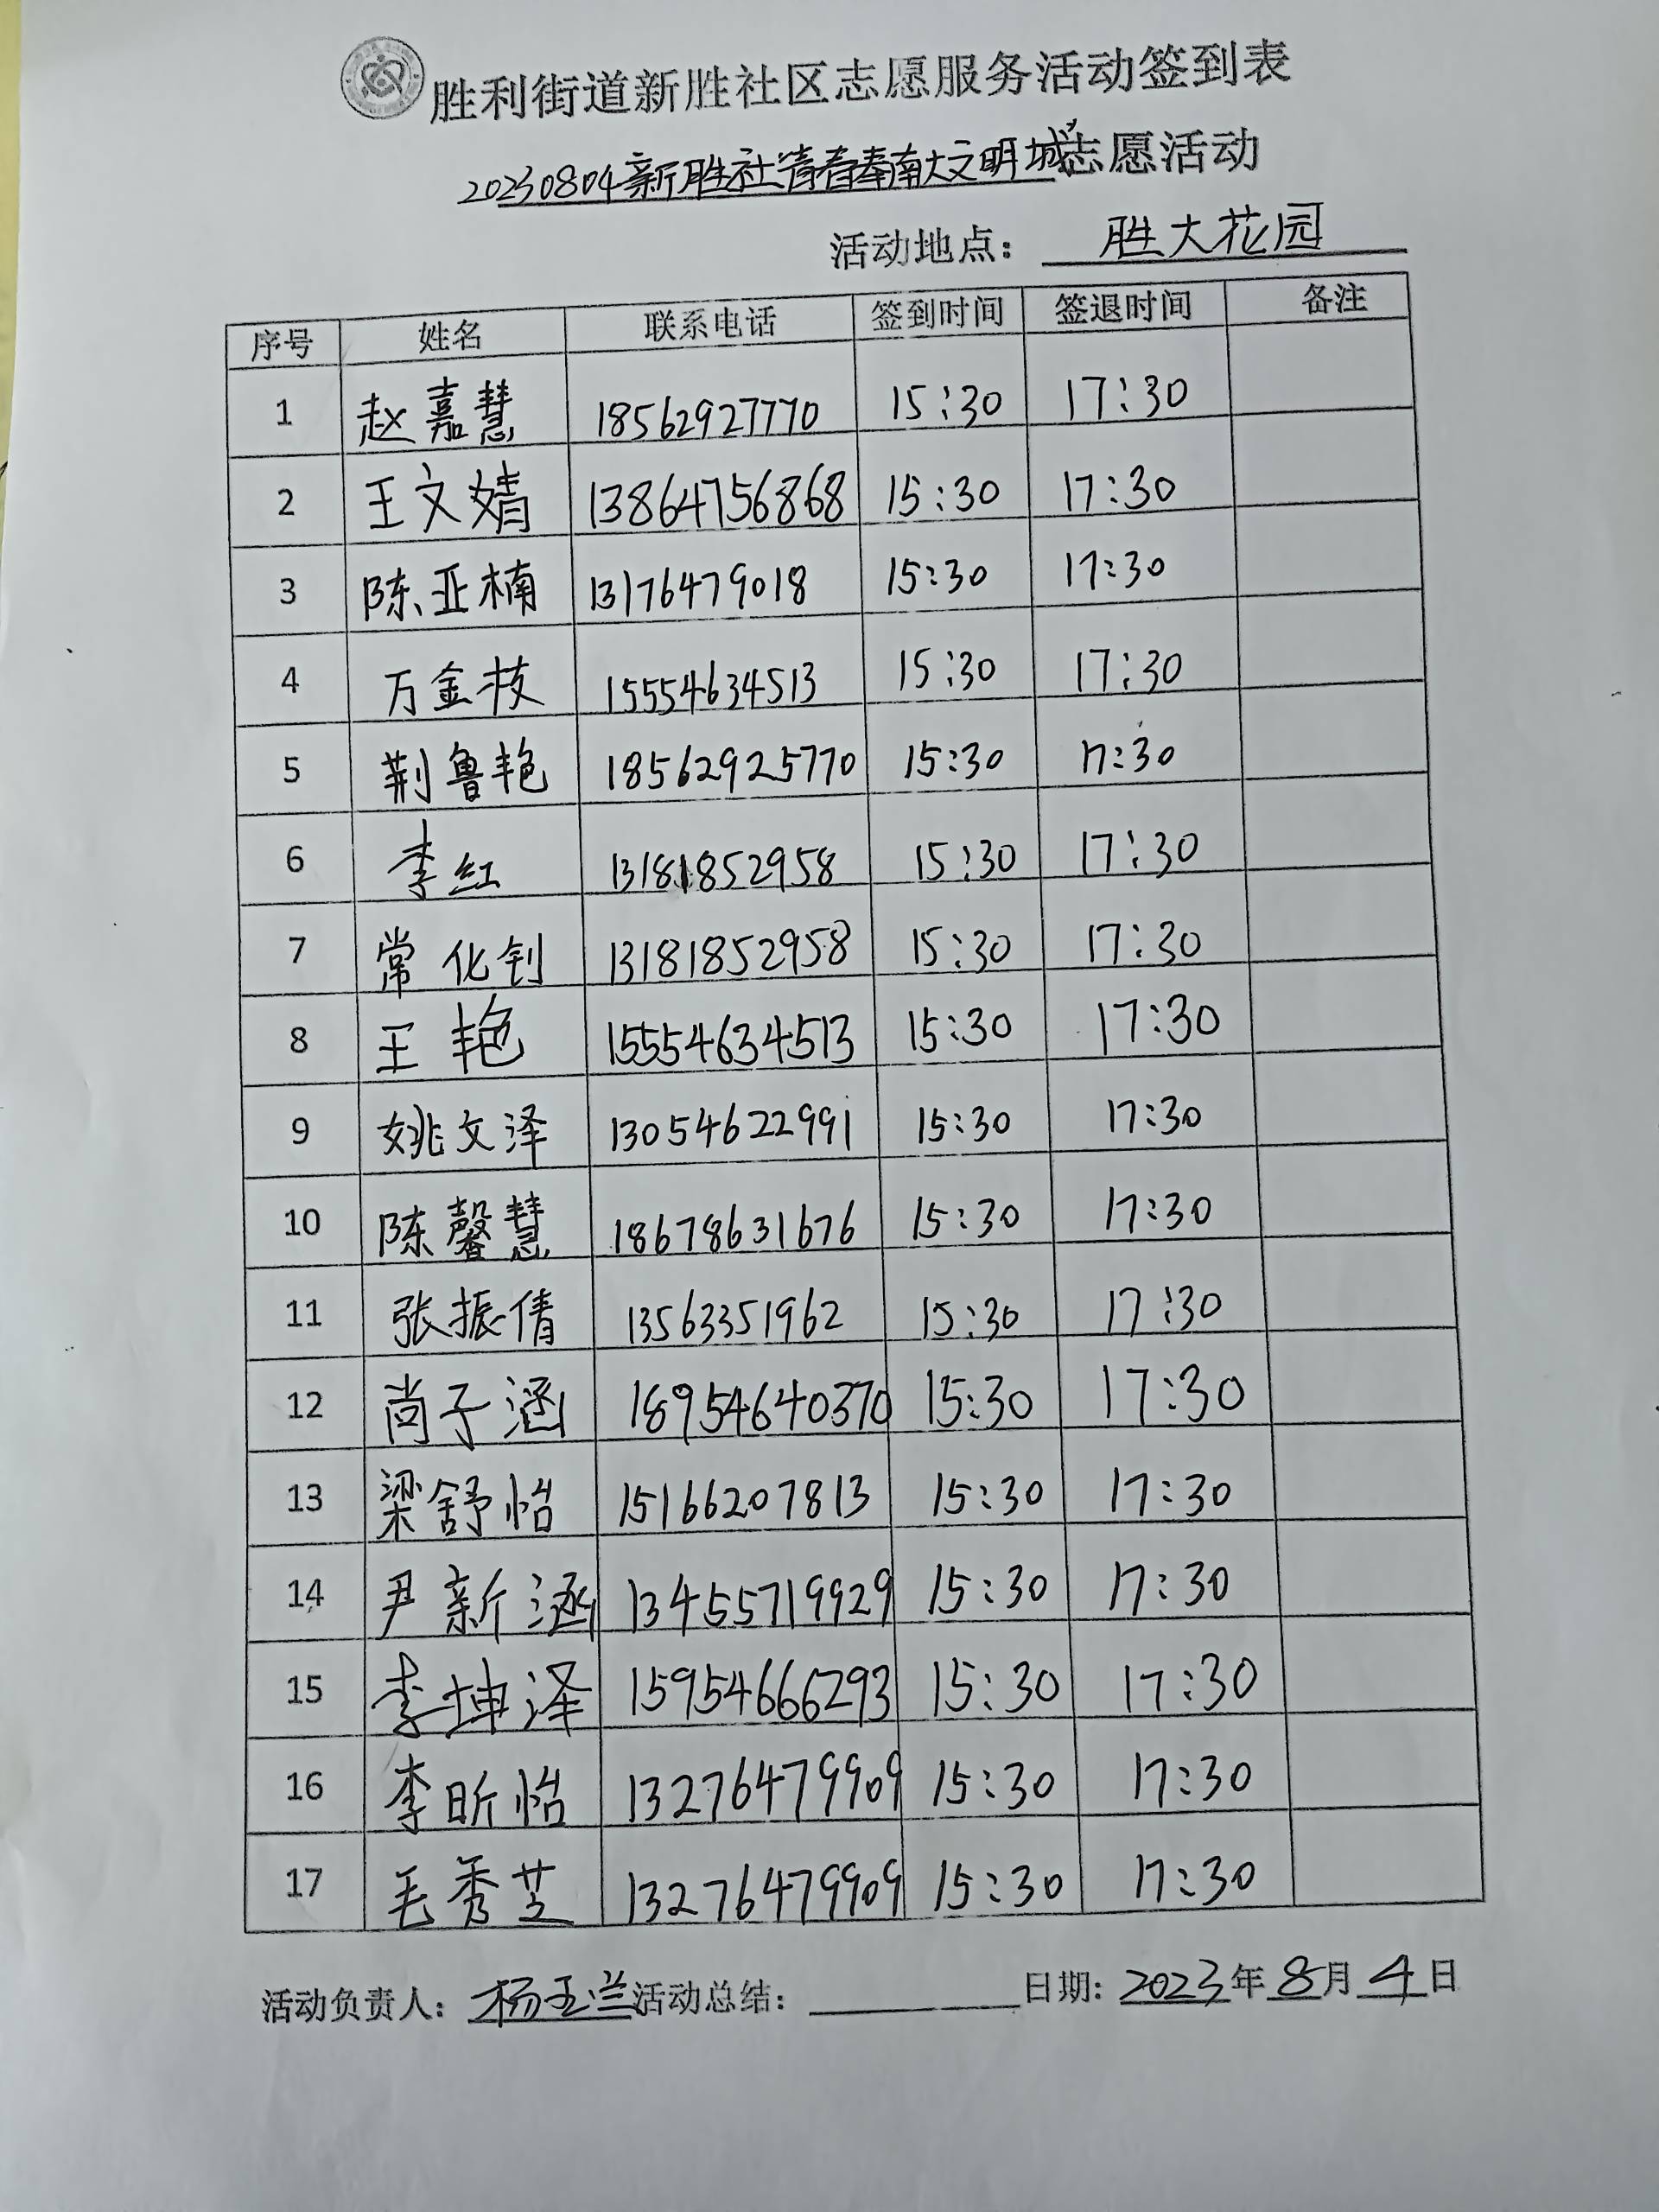 胜利街道新胜社区志愿服务活动签到表
20230804新胜社青春奉南大文明城”志愿活动
活动地点: 胜大花园
序号 姓名 联系电话 签到时间 签退时间 备注
1 赵嘉慧 18562927770 15:30 17:30
2 王文婧 13864756868 15:30 17:30
3 陈亚楠 13176479018 15:30 17:30
4 万金枝 15554634513 15:30 17:30
5 荆鲁艳 18562925770 15:30 17:30
6 李红 13181852958 15:30 17:30
7 常化钊 13181852958 15:30 17:30
8 王艳 15554634513 15:30 17:30
9 姚文泽 13054622991 15:30 17:30
10 陈馨慧 18678631676 15:30 17:30
11 张振倩 13563351962 15:30 17:30
12 尚子涵 18954640370 15:30 17:30
13 梁舒怡 15166207813 15:30 17:30
14 尹新涵 13455719929 15:30 17:30
15 李坤泽 15954666293 15:30 17:30
16 李昕怡 13276479909 15:30 17:30
17 毛秀芝 13276479909 15:30 17:30
活动负责人: 杨玉兰 活动总结: 日期: 2023年8月4日